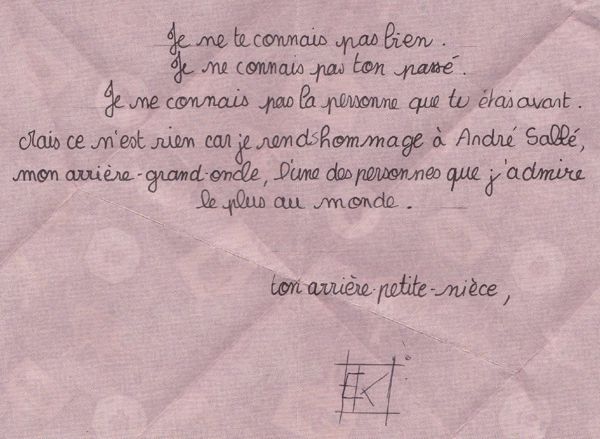 Je ne te connais pas bien.
Je ne connais pas ton passé.
Je ne connais pas la personne que tu étais avant.
Mais ce n'est rien car je rends hommage à André Sallé,
mon arrière-grand-oncle, l'une des personnes que j'admire
le plus au monde.
ton arrière-petite-nièce,
EK